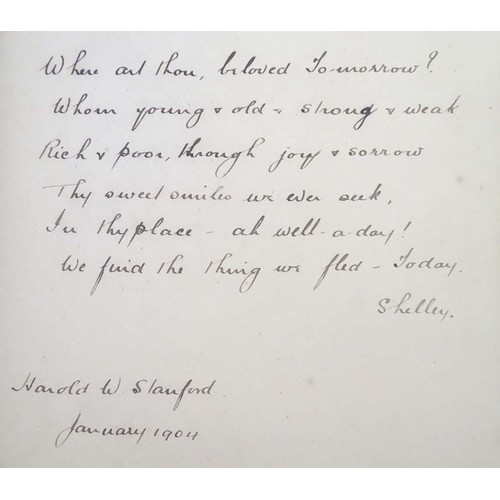 Where art thou, beloved To-morrow?
Whom young & old & strong & weak
Rich & poor, through joy & sorrow
Thy sweet smiles we ever seek,
In thy place - ah well-a-day!
We find the thing we fled - Today.
Shelley.
Harold W Stanford
January 1904